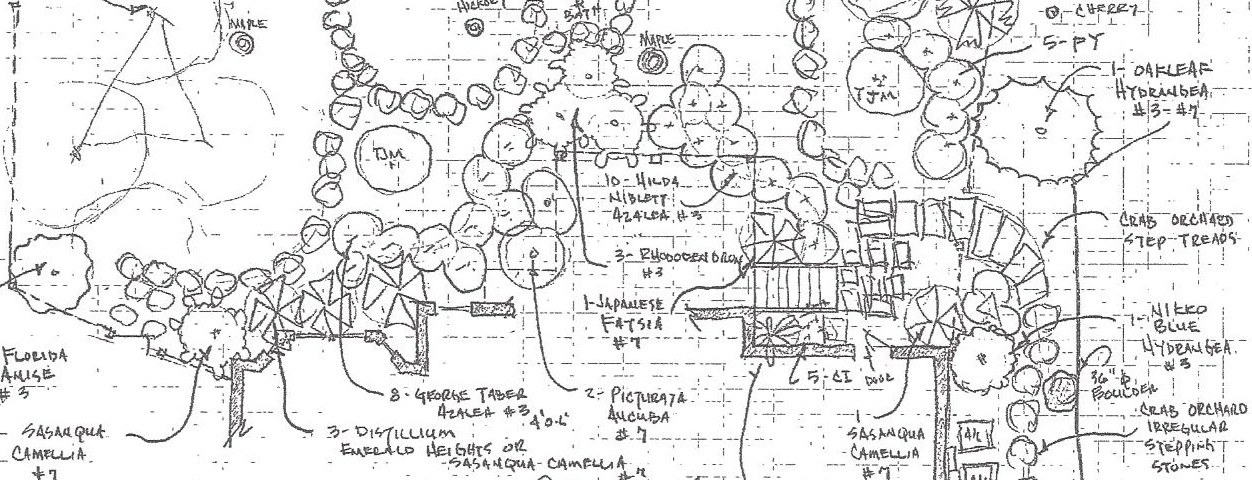 HICKORY
BATH
MAPLE
MAPLE
CHERRY
5-PY
TJM
TJM
1- OAKLEAF
HYDRANGEA
#3-#7
10- HILDA
NIBLETT
AZALEA #3
CRAB ORCHARD
STEP TREADS
3- RHODODENDRON
#3
1-JAPANESE
FATSIA
#7
1- NIKKO
BLUE
HYDRANGEA
#3
FLORIDA
ANISE
#3
5-CI
DOOR
36" Ø
BOULDER
8- GEORGE TABER
AZALEA #3
2- PICTURATA
AUCUBA
#7
CRAB ORCHARD
IRREGULAR
STEPPING
STONES
SASANQUA
CAMELLIA
#7
3- DISTILLIUM
EMERALD HEIGHTS OR
SASANQUA-CAMELLIA
#7
1
SASANQUA
CAMELLIA
#7